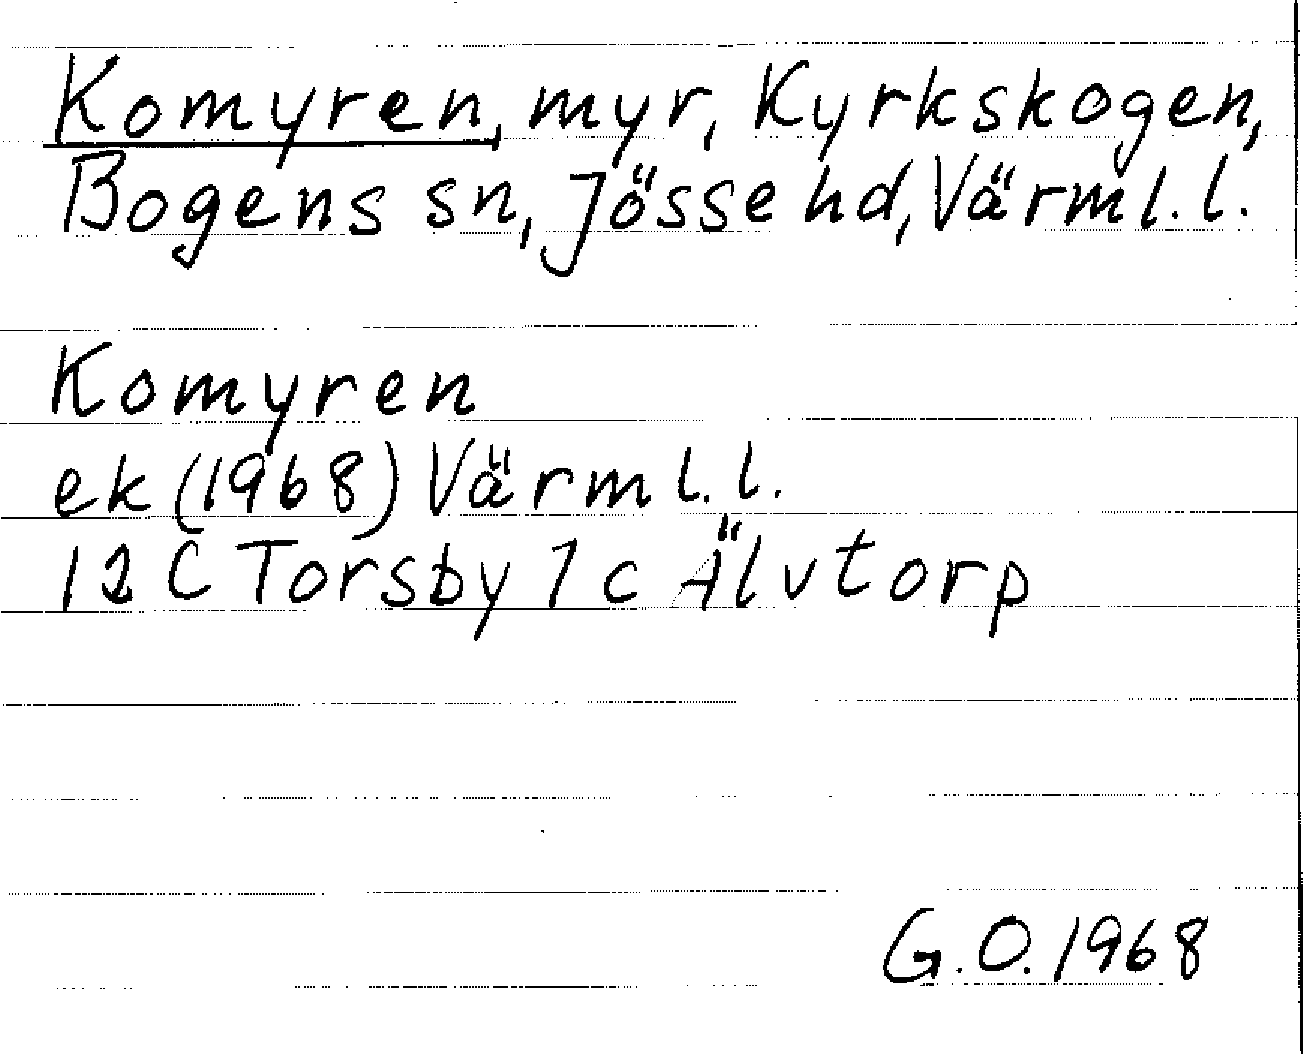 Komyren, myr, Kyrkskogen,
Bogens sn, Jösse hd, Värml. l.
Komyren
ek (1968) Värml. l.
12 C Torsby 1 c Älvtorp
G.O. 1968